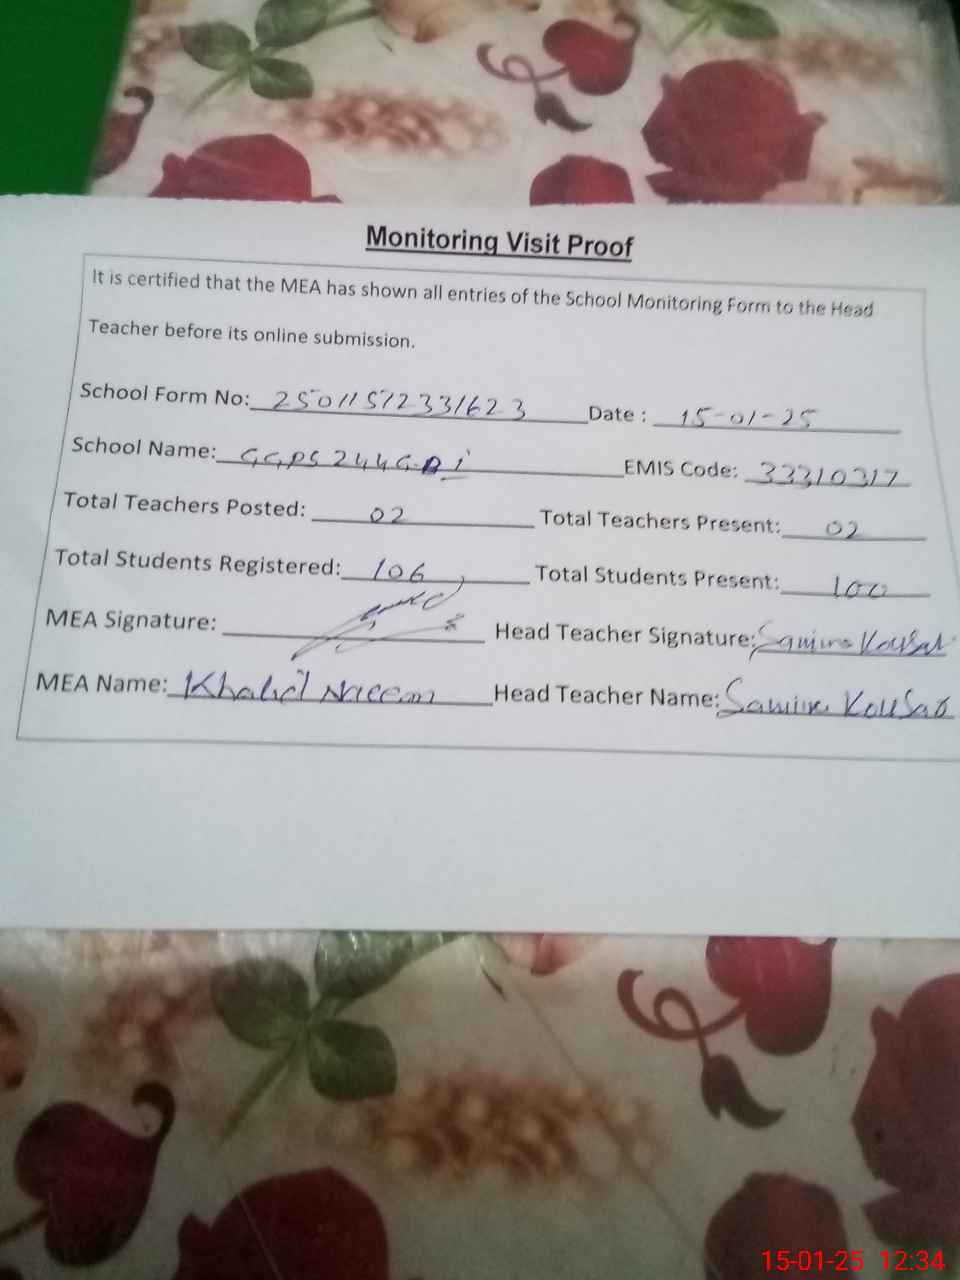 Monitoring Visit Proof
It is certified that the MEA has shown all entries of the School Monitoring Form to the Head
Teacher before its online submission.
School Form No: 25011512331623 Date : 15-01-25
School Name: GGPS 244 G.B i EMIS Code: 33310317
Total Teachers Posted: 02 Total Teachers Present: 02
Total Students Registered: 106 Total Students Present: 100
MEA Signature: Head Teacher Signature: Samina Kousar
MEA Name: Khalid Naeem Head Teacher Name: Samina Kousar
15-01-25 12:34